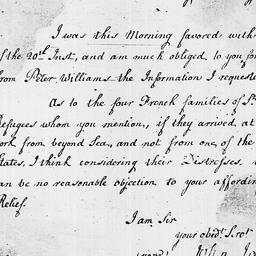 I was this Morning favored with
of the 20th Inst, and am much obliged to you for
from Peter Williams the Information I requested
As to the four French families of St
Refugees whom you mention, if they arrived at
York from beyond Sea, and not from one of the
States, I think considering their Distresses,
can be no reasonable objection to your affording
Relief.
I am Sir
your obedt. Servt